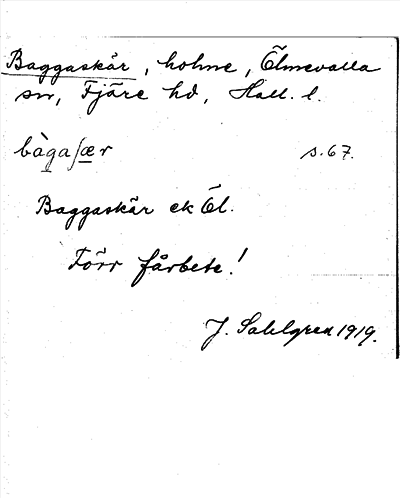 Baggaskär, holme, Ölmevalla
sn, Fjäre hd, Hall. l.
bàgaʃær s. 67.
Baggaskär ek Öl.
Förr fårbete!
J. Sahlgren 1919.